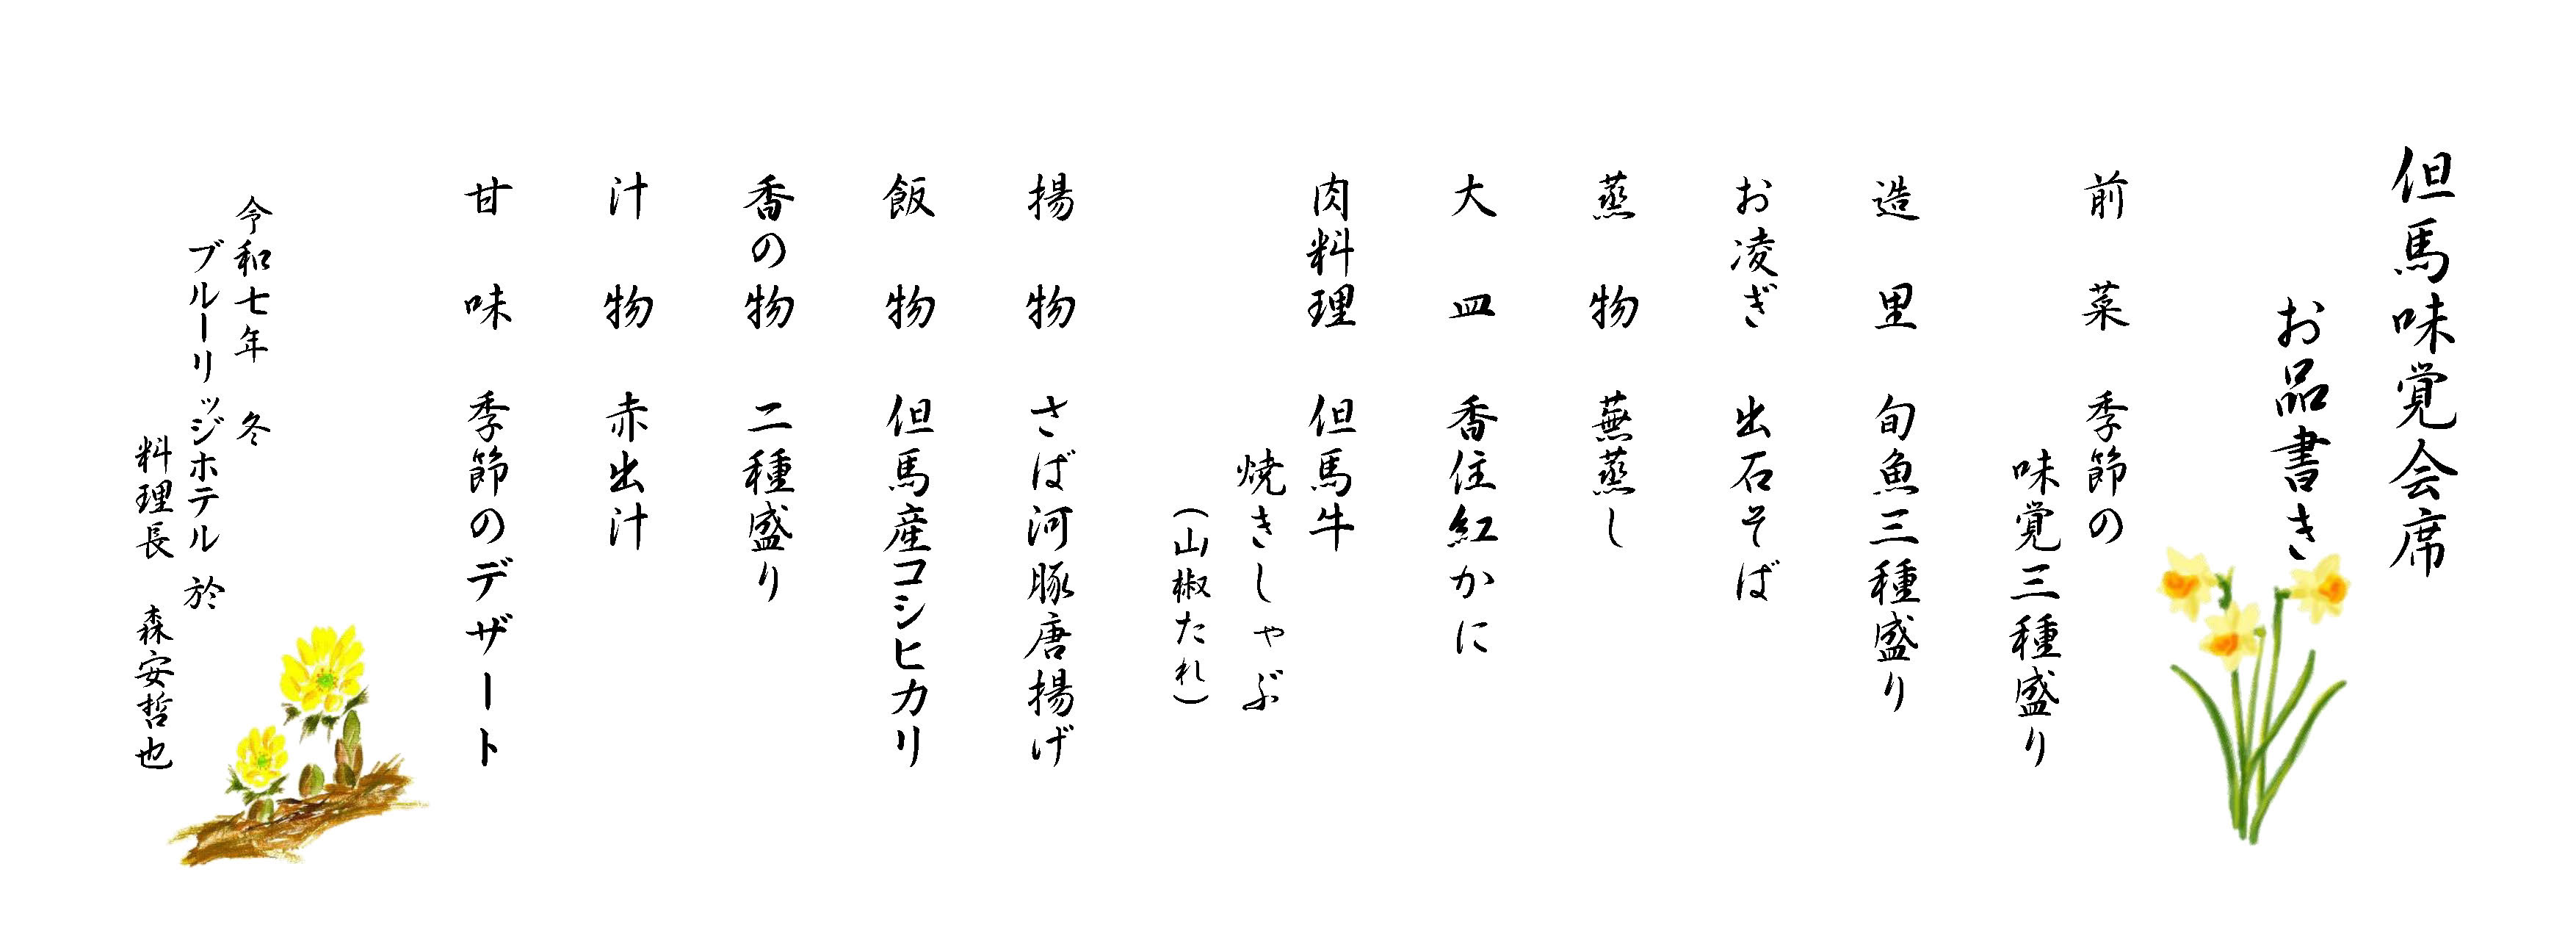 但馬味覚会席
お品書き
前菜 季節の
味覚三種盛り
造里 旬魚三種盛り
お凌ぎ 出石そば
蒸物 蕪蒸し
大皿 香住紅かに
肉料理 但馬牛
焼きしゃぶ
（山椒たれ）
揚物 さば河豚唐揚げ
飯物 但馬産コシヒカリ
香の物 二種盛り
汁物 赤出汁
甘味 季節のデザート
令和七年 冬
ブルーリッジホテル 於
料理長 森安哲也